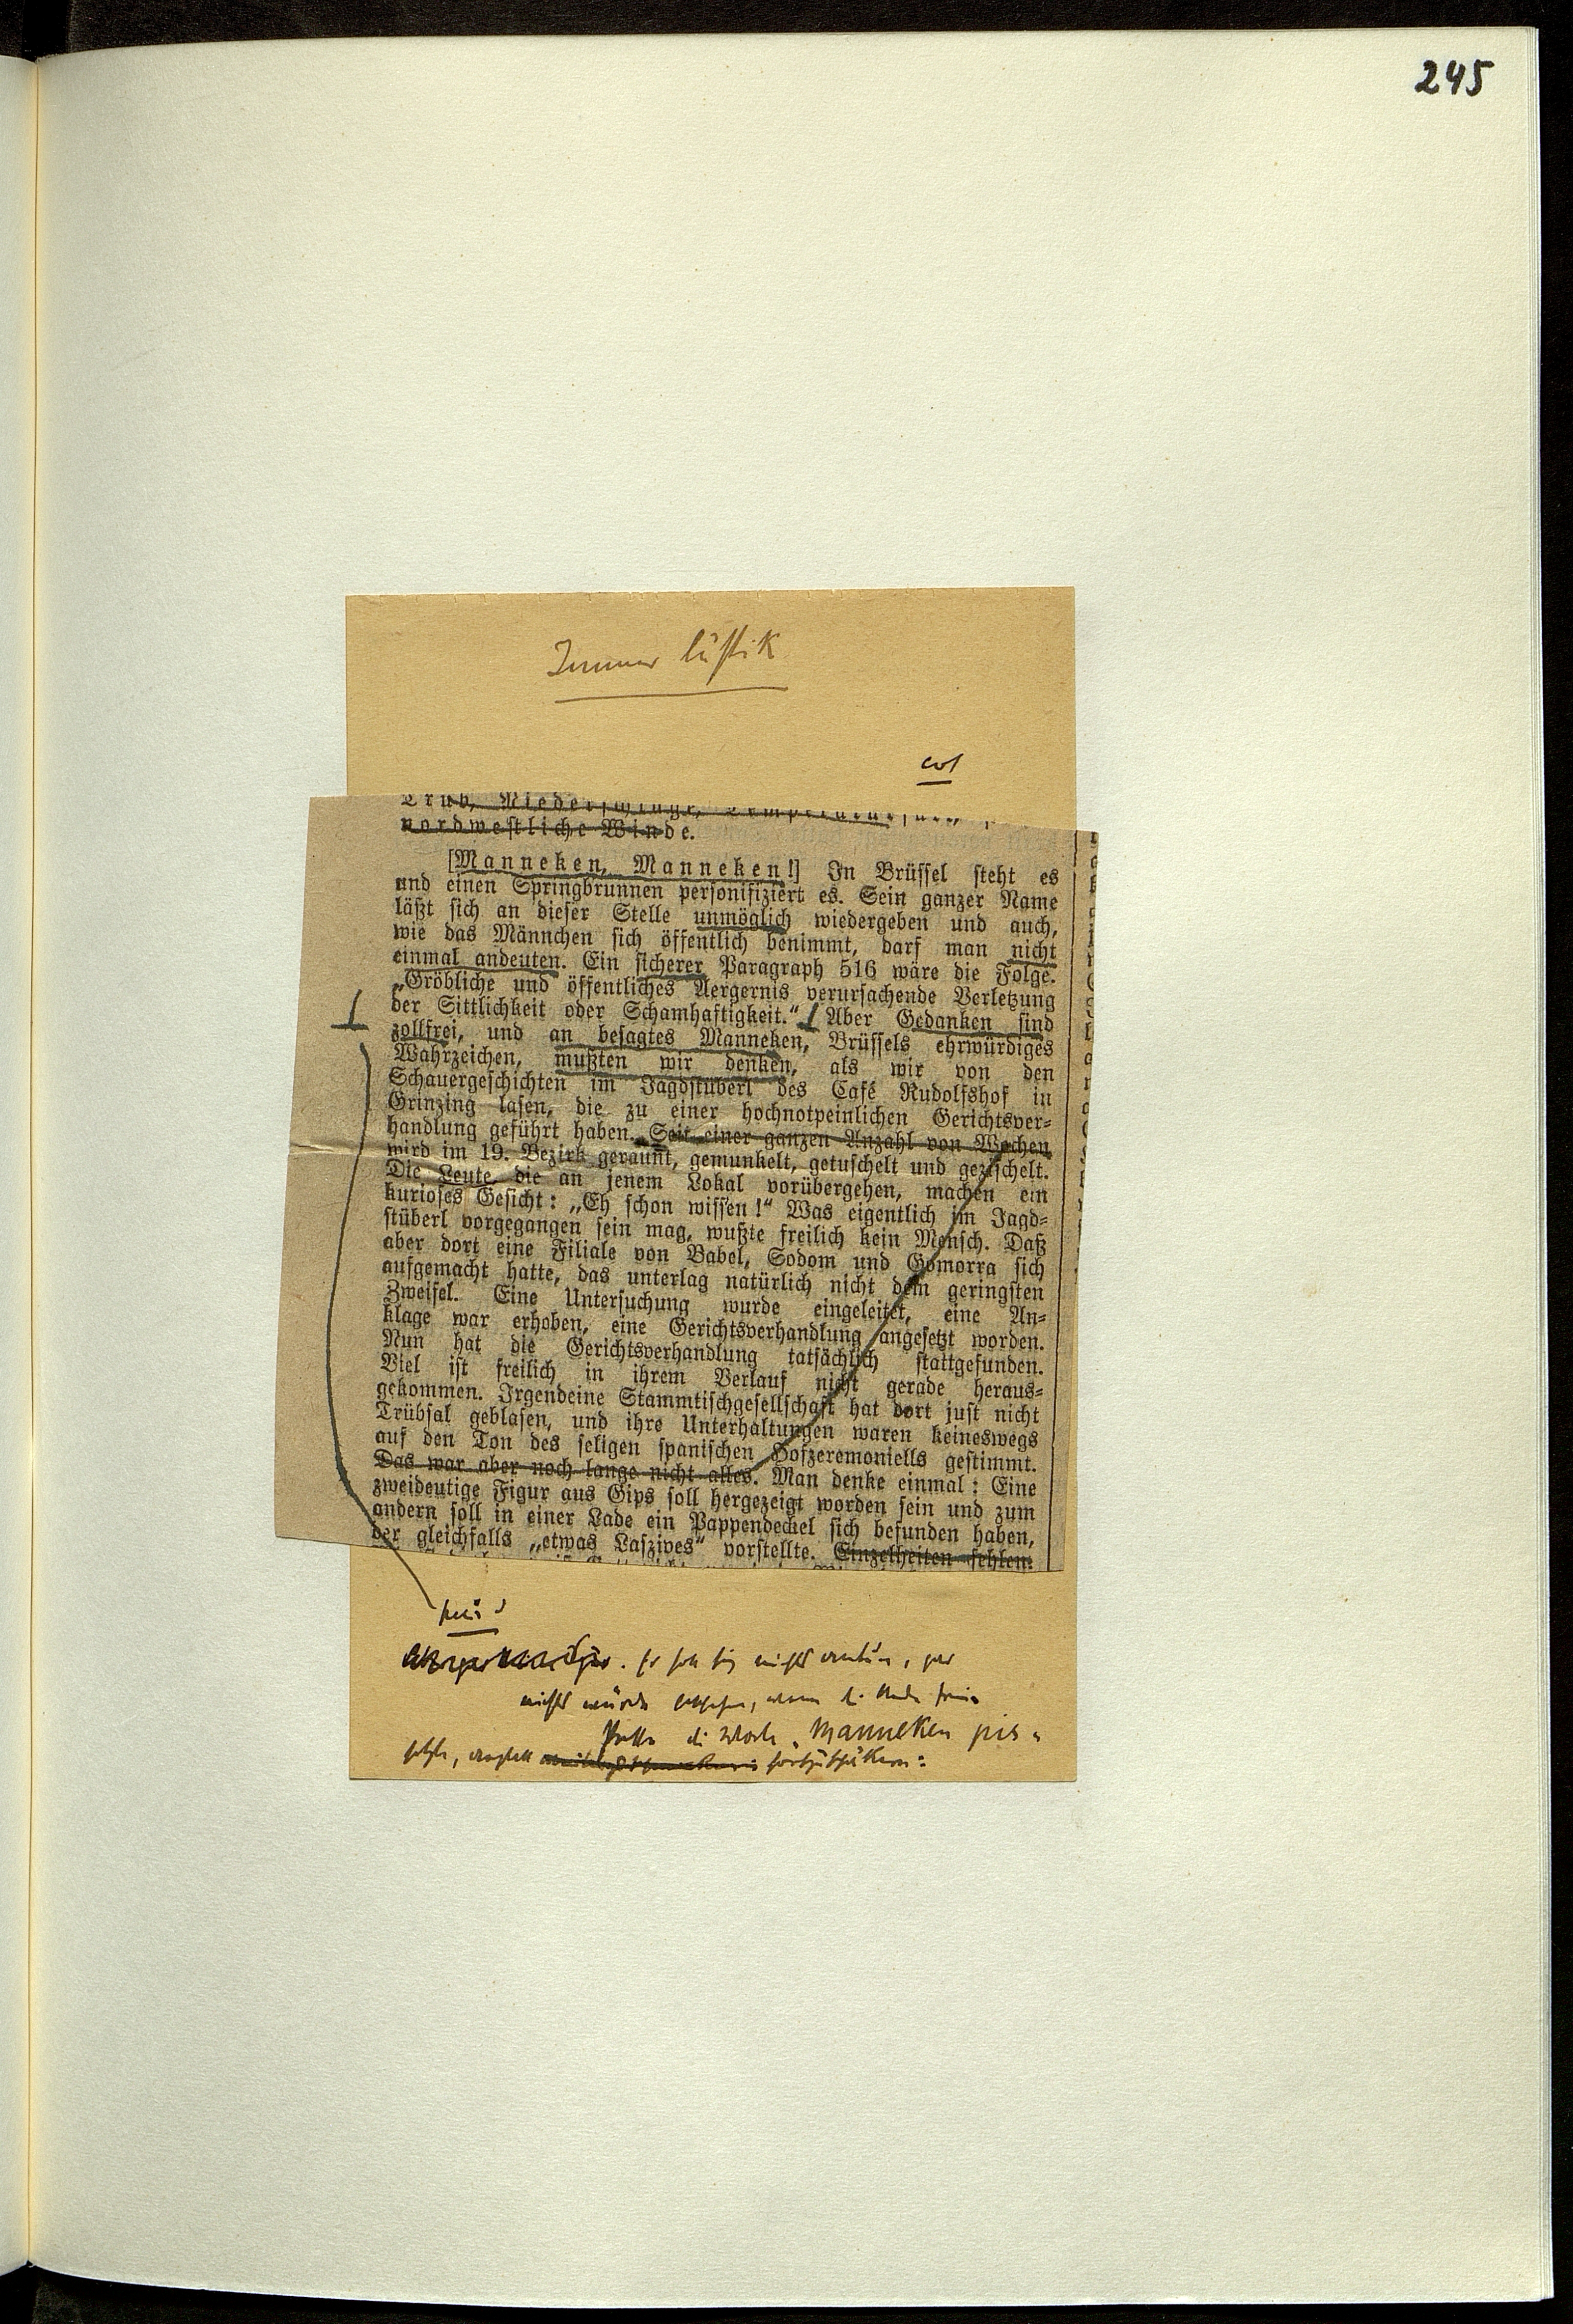 245
Immer lustik
Trüb, Niederschläge,
nordwestliche Winde.
[Manneken, Manneken!] In Brüssel steht es
und einen Springbrunnen personifiziert es. Sein ganzer Name
läßt sich an dieser Stelle unmöglich wiedergeben und auch,
wie das Männchen sich öffentlich benimmt, darf man nicht
einmal andeuten. Ein sicherer Paragraph 516 wäre die Folge.
„Gröbliche und öffentliches Aergernis verursachende Verletzung
der Sittlichkeit oder Schamhaftigkeit.“ Aber Gedanken sind
zollfrei, und an besagtes Manneken, Brüssels ehrwürdiges
Wahrzeichen, mußten wir denken, als wir von den
Schauergeschichten im Jagdstüberl des Café Rudolfshof in
Grinzing lasen, die zu einer hochnotpeinlichen Gerichtsver-
handlung geführt haben. Seit einer ganzen Anzahl von Wochen
wird im 19. Bezirk geraunt, gemunkelt, getuschelt und gezischelt.
Die Leute, die an jenem Lokal vorübergehen, machen ein
kurioses Gesicht: „Eh schon wissen!“ Was eigentlich im Jagd-
stüberl vorgegangen sein mag, wußte freilich kein Mensch. Daß
aber dort eine Filiale von Babel, Sodom und Gomorra sich
aufgemacht hatte, das unterlag natürlich nicht dem geringsten
Zweifel. Eine Untersuchung wurde eingeleitet, eine An-
klage war erhoben, eine Gerichtsverhandlung angesetzt worden.
Nun hat die Gerichtsverhandlung tatsächlich stattgefunden.
Viel ist freilich in ihrem Verlauf nicht gerade heraus-
gekommen. Irgendeine Stammtischgesellschaft hat dort just nicht
Trübsal geblasen, und ihre Unterhaltungen waren keineswegs
auf den Ton des seligen spanischen Hofzeremoniells gestimmt.
Das war aber noch lange nicht alles. Man denke einmal: Eine
zweideutige Figur aus Gips soll hergezeigt worden sein und zum
andern soll in einer Lade ein Pappendeckel sich befunden haben,
der gleichfalls „etwas Laszives“ vorstellte. Einzelheiten fehlen.
nichts würde geschehen, wenn
die Worte „Manneken pis“
fortzusetzen: